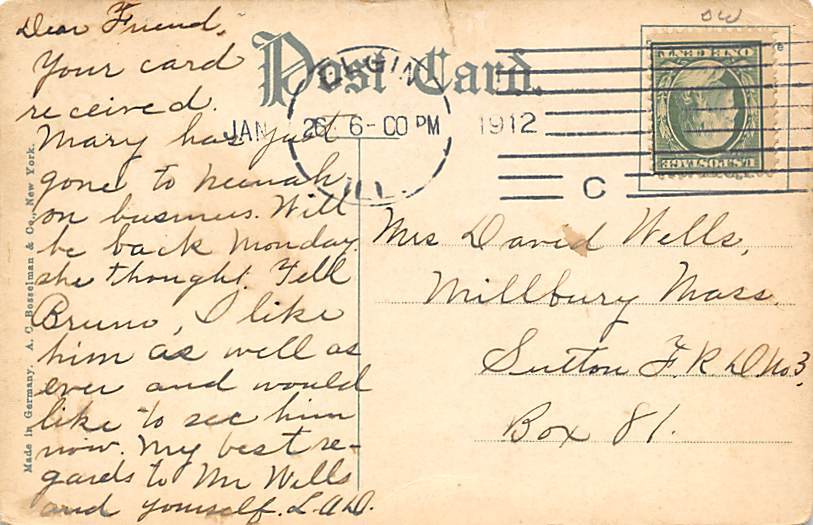 Dear Friend,
Your card
received.
Mary has just
gone to Neenah
on business. Will
be back Monday.
she thought. Tell
Bruno, I like
him as well as
ever and would
like to see him
now. My best re-
gards to Mr Wells
and yourself. L.A.D.
Post Card.
ELGIN
JAN 26 6-00 PM 1912
ILL.
C
ONE CENT
U.S. POSTAGE
Mrs David Wells,
Millbury Mass.
Sutton F.R.D No 3,
Box 81.
Made in Germany. A. C. Bosselman & Co., New York.